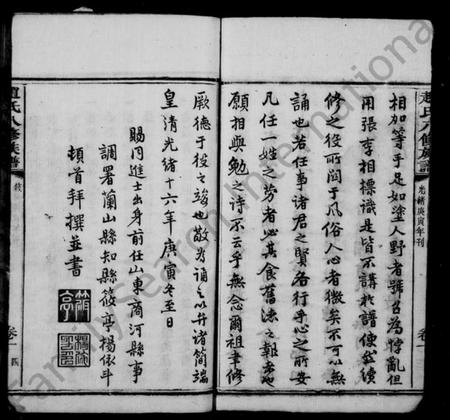 趙氏八修族譜
光緒庚寅年刊
卷一
相加等于足如塗人野者號呂為悖亂但
用張李相標識是皆不講於譜傳並續
修之役所關于風俗人心者微矣不可以無
誦也若任事諸君之賢名行乎心之所安
凡任一姓之勞者必其食舊法之報者也
願相與勉之詩不云乎無念爾祖聿修
厥德于役之竣也敬為誦之以弁諸簡端
皇清光緒十六年庚寅冬至日
賜同進士出身前任山東商河縣事
調署蘭山縣知縣筱亭楊依斗
頓首拜撰並書
筱亭
趙氏八修族譜
卷一
四
FamilySearch International